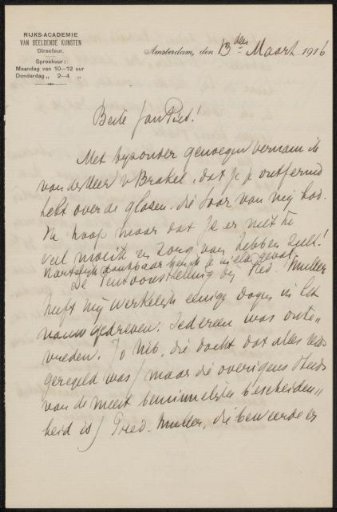 RIJKS-ACADEMIE
VAN BEELDENDE KUNSTEN
Directeur.
Spreekuur:
Maandag van 10–12 uur
Donderdag „ 2–4 „
Amsterdam, den 13den Maart 1916
Beste Jan Piet!
Met byzonder genoegen vernam ik
van de Heer v Brakel, dat je je ontfermd
hebt over de glasen, die daar van my had.
Ik hoop maar dat je er niet te
veel moeite en zorg van hebben zult!
hartelyk dankbaar ben ik je in elk geval
De tentoonstelling by Fred. Muller
heeft my werkelyk eenige dagen in het
nauw gedreven. Iedereen was onte-
vreden. Jo Nib, die dacht dat alles
geregeld was / maar die overigens steeds
van de meest beminnelyke bescheiden„
heid is / Fred. Muller, die beweerde er